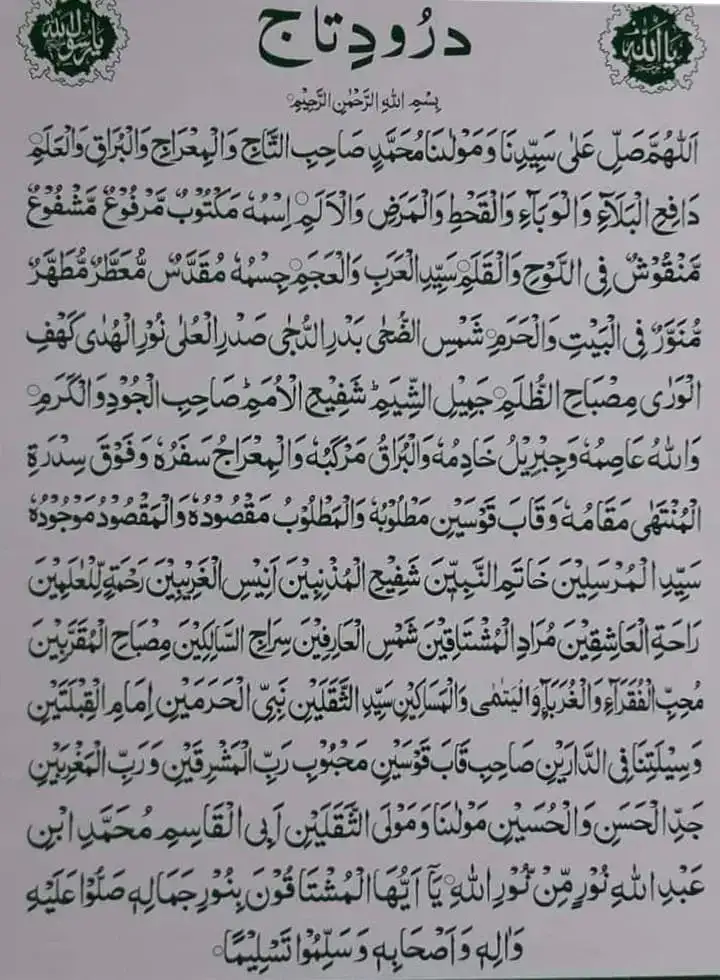 یا رسول اللہ
درُودِ تاج
یا اللہ
بِسْمِ اللهِ الرَّحْمٰنِ الرَّحِيْمِ
اَللّٰهُمَّ صَلِّ عَلٰى سَيِّدِنَا وَمَوْلٰىنَا مُحَمَّدٍ صَاحِبِ التَّاجِ وَالْمِعْرَاجِ وَالْبُرَاقِ وَالْعَلَمِ
دَافِعِ الْبَلَآءِ وَالْوَبَآءِ وَالْقَحْطِ وَالْمَرَضِ وَالْاَلَمِ اِسْمُهٗ مَكْتُوْبٌ مَّرْفُوْعٌ مَّشْفُوْعٌ
مَّنْقُوْشٌ فِى اللَّوْحِ وَالْقَلَمِ سَيِّدِ الْعَرَبِ وَالْعَجَمِ جِسْمُهٗ مُقَدَّسٌ مُّعَطَّرٌ مُّطَهَّرٌ
مُّنَوَّرٌ فِى الْبَيْتِ وَالْحَرَمِ شَمْسِ الضُّحٰى بَدْرِ الدُّجٰى صَدْرِ الْعُلٰى نُوْرِ الْهُدٰى كَهْفِ
الْوَرٰى مِصْبَاحِ الظُّلَمِ جَمِيْلِ الشِّيَمِ شَفِيْعِ الْاُمَمِ صَاحِبِ الْجُوْدِ وَالْكَرَمِ
وَاللهُ عَاصِمُهٗ وَجِبْرِيْلُ خَادِمُهٗ وَالْبُرَاقُ مَرْكَبُهٗ وَالْمِعْرَاجُ سَفَرُهٗ وَفَوْقَ سِدْرَةِ
الْمُنْتَهٰى مَقَامُهٗ وَقَابَ قَوْسَيْنِ مَطْلُوْبُهٗ وَالْمَطْلُوْبُ مَقْصُوْدُهٗ وَالْمَقْصُوْدُ مَوْجُوْدُهٗ
سَيِّدِ الْمُرْسَلِيْنَ خَاتَمِ النَّبِيّٖنَ شَفِيْعِ الْمُذْنِبِيْنَ اَنِيْسِ الْغَرِيْبِيْنَ رَحْمَةٍ لِّلْعٰلَمِيْنَ
رَاحَةِ الْعَاشِقِيْنَ مُرَادِ الْمُشْتَاقِيْنَ شَمْسِ الْعَارِفِيْنَ سِرَاجِ السَّالِكِيْنَ مِصْبَاحِ الْمُقَرَّبِيْنَ
مُحِبِّ الْفُقَرَآءِ وَالْغُرَبَآءِ وَالْيَتٰمٰى وَالْمَسَاكِيْنِ سَيِّدِ الثَّقَلَيْنِ نَبِيِّ الْحَرَمَيْنِ اِمَامِ الْقِبْلَتَيْنِ
وَسِيْلَتِنَا فِى الدَّارَيْنِ صَاحِبِ قَابَ قَوْسَيْنِ مَحْبُوْبِ رَبِّ الْمَشْرِقَيْنِ وَرَبِّ الْمَغْرِبَيْنِ
جَدِّ الْحَسَنِ وَالْحُسَيْنِ مَوْلٰىنَا وَمَوْلَى الثَّقَلَيْنِ اَبِى الْقَاسِمِ مُحَمَّدِ ابْنِ
عَبْدِ اللهِ نُوْرٍ مِّنْ نُّوْرِ اللهِ يَآ اَيُّهَا الْمُشْتَاقُوْنَ بِنُوْرِ جَمَالِهٖ صَلُّوْا عَلَيْهِ
وَاٰلِهٖ وَاَصْحَابِهٖ وَسَلِّمُوْا تَسْلِيْمًا